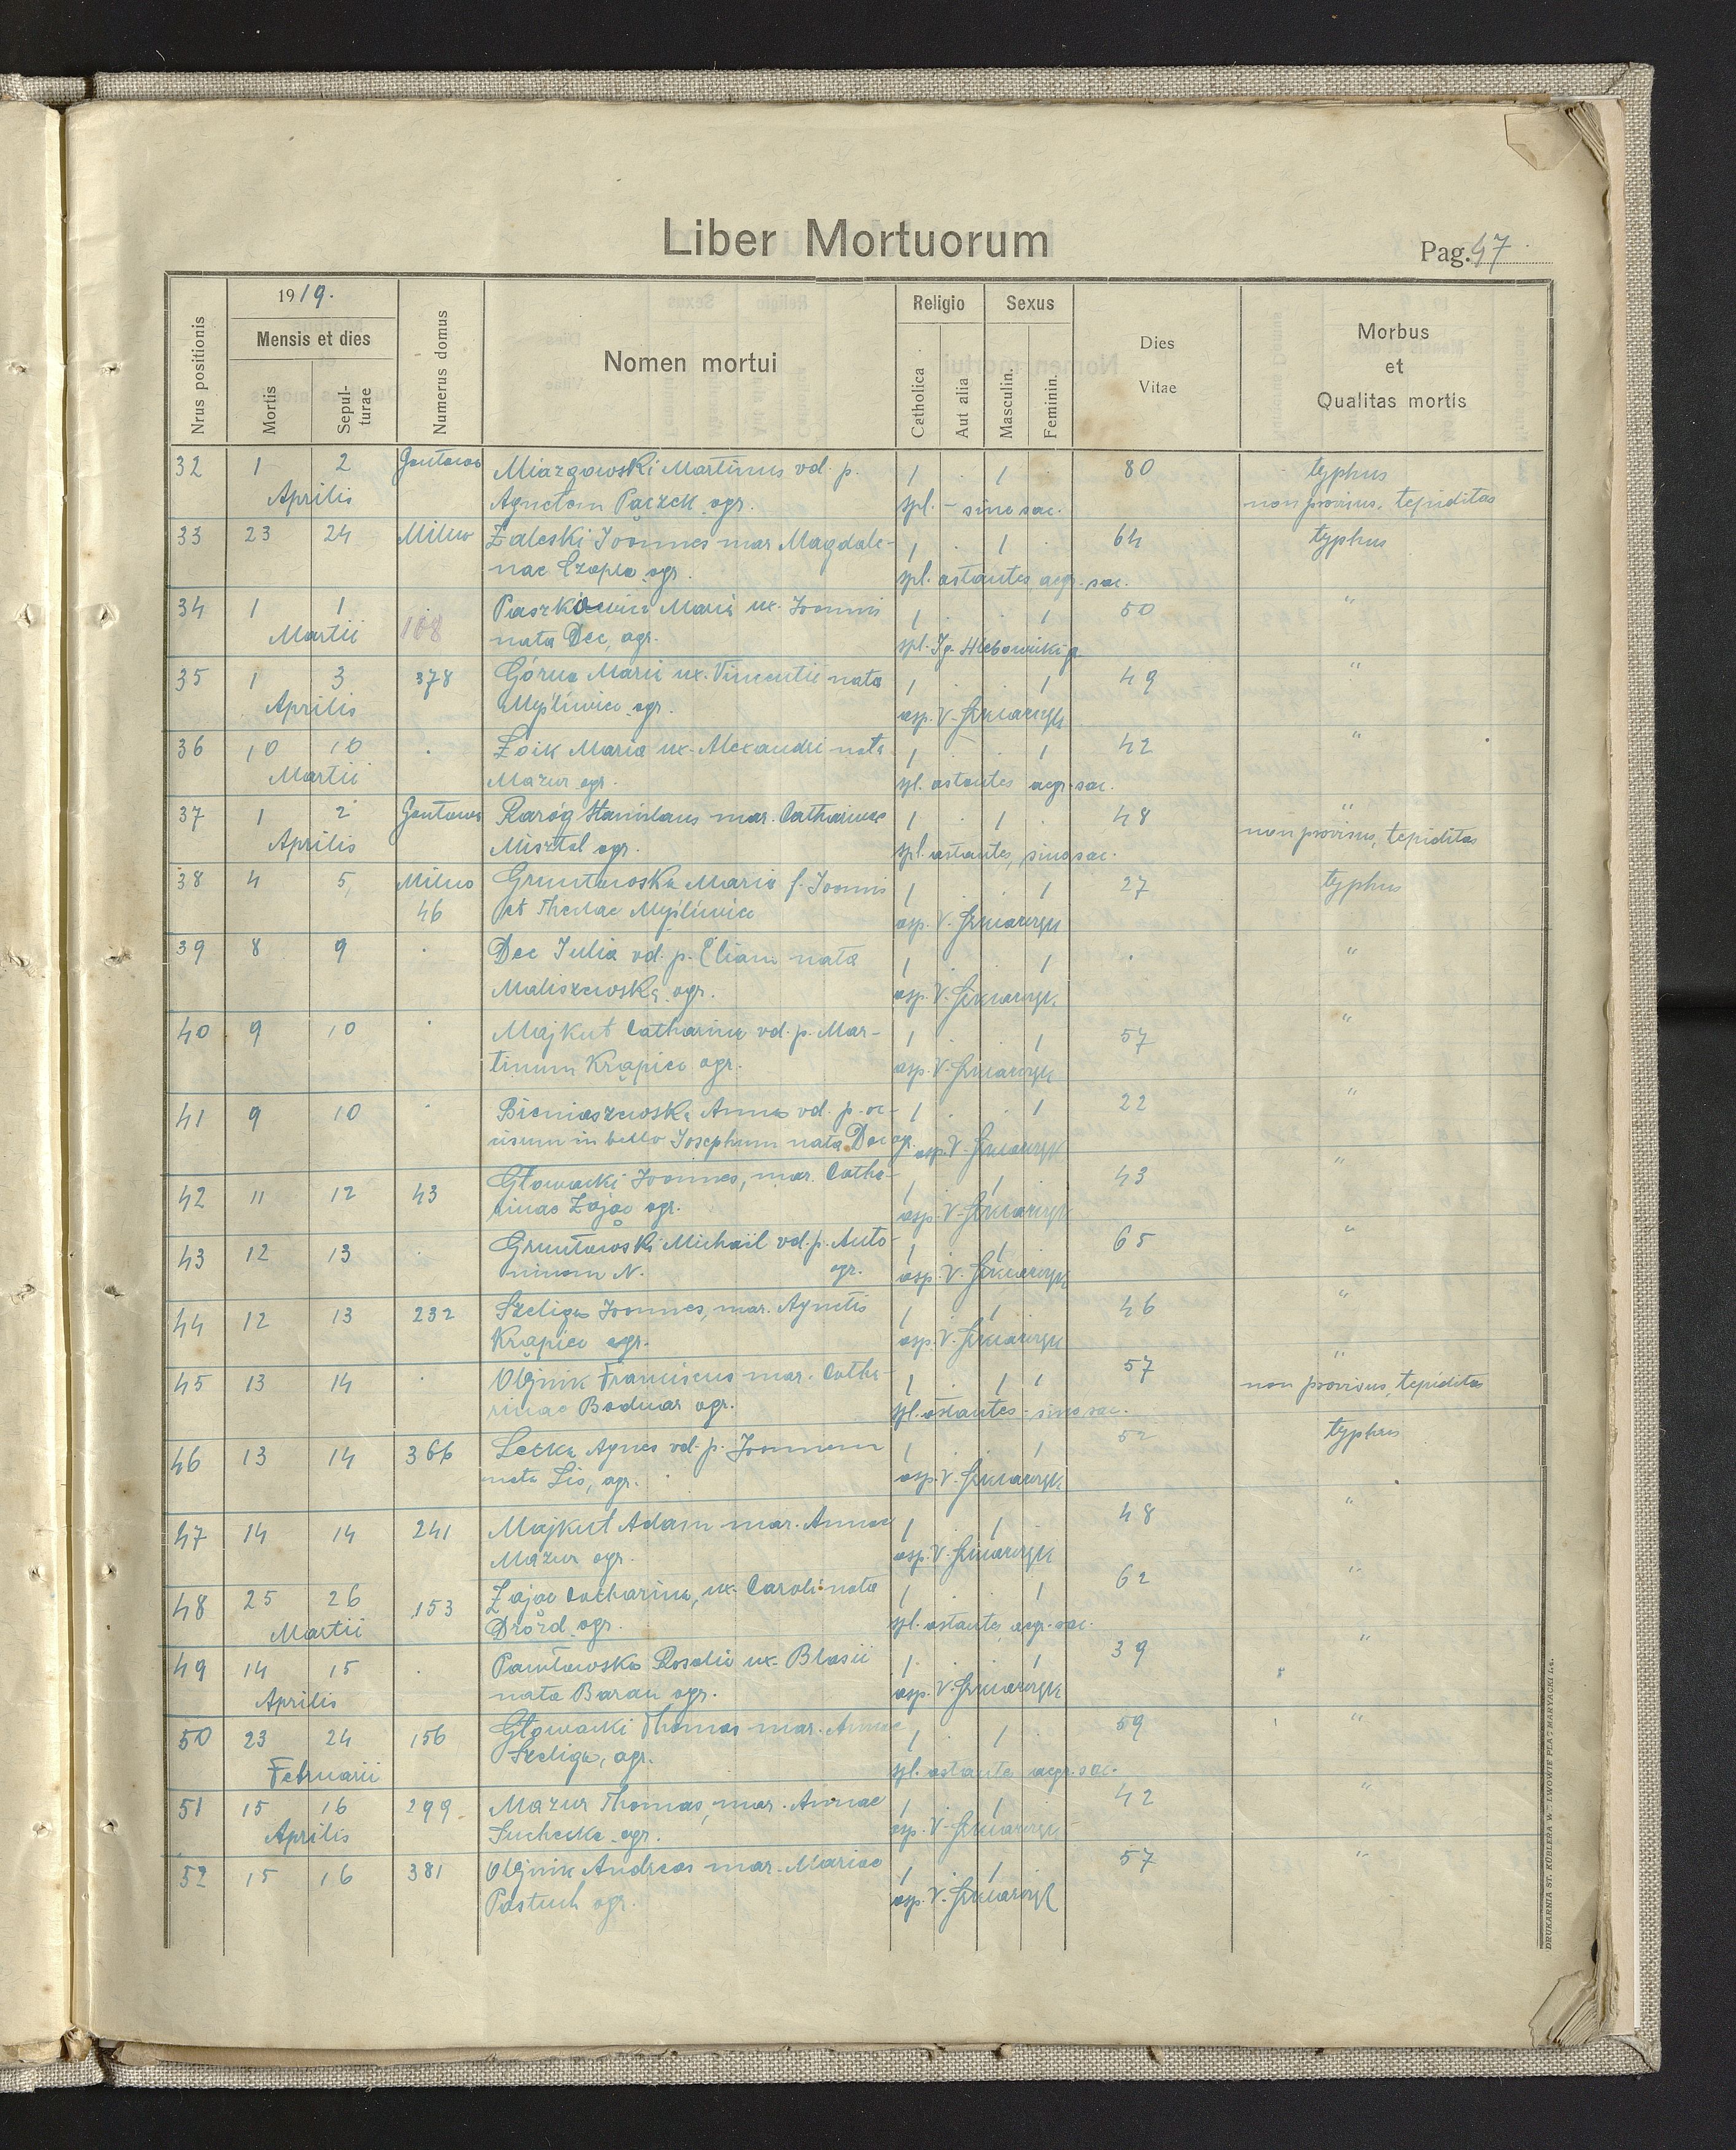 Liber Mortuorum
Pag. 47
Nrus positionis
1919.
Mensis et dies
Mortis
Sepul-
turae
Numerus domus
Nomen mortui
Religio
Catholica
Aut alia
Sexus
Masculin.
Feminin.
Dies
Vitae
Morbus
et
Qualitas mortis
32 1 2 Gontowa Miazgowski Martinus vd. p. 1 . 1 . 80 typhus
Aprilis Agnetam Paczek agr. spl. - sine sac. non provisus, tepiditas
33 23 24 Milno Zaleski Joannes mar Magdale- 1 . 1 . 64 typhus
nae Czapla agr. spl. astantes aegr. sac.
34 1 1 108 Paszkiewicz Maria ux. Joannis 1 . . 1 50 "
Martii nata Dec, agr. spl. Ig. Hlebowicki p.
35 1 3 378 Górna Maria ux. Vincentii nata 1 . . 1 49 "
Aprilis Myśliwiec agr. asp. V. Szklarczyk
36 10 10 . Łoik Maria ux. Alexandri nata 1 . . 1 42 "
Martii Mazur agr. spl. astantes aegr. sac.
37 1 2 Gontowa Raróg Stanislaus mar. Catharinae 1 . 1 . 48 "
Aprilis Misztal agr. spl. astantes, sine sac. non provisus, tepiditas
38 4 5 Milno Gruntowska Maria f. Joannis 1 . . 1 27 typhus
46 et Theclae Myśliwiec asp. V. Szklarczyk
39 8 9 . Dec Julia vd. p. Eliam nata 1 . . 1 . "
Maliszewska agr. asp. V. Szklarczyk
40 9 10 . Majkut Catharina vd. p. Mar- 1 . . 1 57 "
tinum Krąpiec agr. asp. V. Szklarczyk
41 9 10 . Bieniaszewska Anna vd. p. oc- 1 . . 1 22 "
cisum in bello Josephum nata Dec agr. asp. V. Szklarczyk
42 11 12 43 Głowacki Joannes, mar. Catha- 1 . 1 43 "
rinae Zając agr. asp. V. Szklarczyk
43 12 13 . Gruntowski Michaël vd. p. Anto- 1 . 1 65 "
ninam N. agr. asp. V. Szklarczyk
44 12 13 232 Szeliga Joannes, mar. Agnetis 1 . 1 . 46 "
Krąpiec agr. asp. V. Szklarczyk
45 13 14 . Olejnik Franciscus mar. Catha- 1 . 1 1 57 "
rinae Bodnar agr. spl. astantes - sine sac. non provisus, tepiditas
46 13 14 366 Letka Agnes vd. p. Joannem 1 . . 1 52 typhus
nata Lis, agr. asp. V. Szklarczyk
47 14 14 241 Majkut Adam mar. Annae 1 . 1 . 48 "
Mazur agr. asp. V. Szklarczyk
48 25 26 153 Zając Catharina, ux. Caroli nata 1 . . 1 62 "
Martii Drózd agr. spl. astantes aegr. sac.
49 14 15 . Pawłowska Rosalia ux. Blasii 1 . . 1 39 "
Aprilis nata Baran agr. asp. V. Szklarczyk
50 23 24 156 Głowacki Thomas mar. Annae 1 . 1 . 59 "
Februarii Szeliga, agr. spl. astantes aegr. sac.
51 15 16 299 Mazur Thomas, mar. Annae 1 . 1 42 "
Aprilis Suchecka agr. asp. V. Szklarczyk
52 15 16 381 Olejnik Andreas mar. Mariae 1 . 1 57 "
Pastuch agr. asp. V. Szklarczyk
DRUKARNIA ST. KÜBLERA W LWOWIE PLA MARYACKI L.